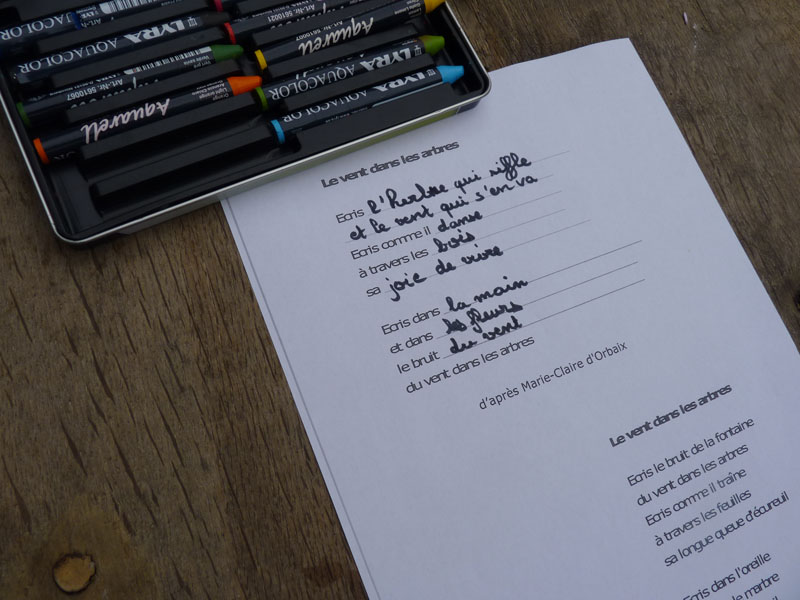 LYRA AQUACOLOR
Art.-Nr. 5610021
LYRA AQUACOLOR
Art.-Nr. 5610007
Aquarell
Art.-Nr. 5610067
LYRA AQUACOLOR
Aquarell
LYRA AQUACOLOR
Le vent dans les arbres
Ecris l'herbe qui siffle
et le vent qui s'en va
Ecris comme il danse
à travers les bois
sa joie de vivre
Ecris dans la main
et dans les fleurs
le bruit du vent
du vent dans les arbres
d'après Marie-Claire d'Orbaix
Le vent dans les arbres
Ecris le bruit de la fontaine
du vent dans les arbres
Ecris comme il traîne
à travers les feuilles
sa longue queue d'écureuil
Ecris dans l'oreille
le marbre